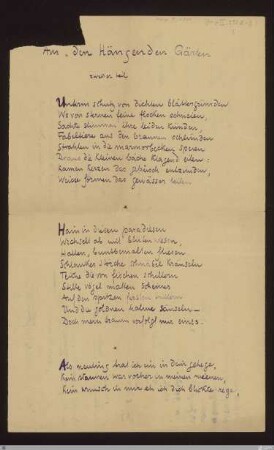 Aus. den Hängenden Gärten
zweiter teil
Unterm schutz von dichten blättergründen
Wo von sternen feine flocken schneien,
Sachte stimmen ihre leiden künden,
Fabeltiere aus den braunen schlünden
Strahlen in die marmorbecken speien,
Draus die kleinen bäche klagend eilen:
Kamen kerzen das gebüsch entzünden,
Weisse formen das gewässer teilen.
Hain in diesen paradiesen
Wechselt ab mit blütenwiesen,
Hallen, buntbemalten fliesen.
Schlanker störche schnäbel kräuseln
Teiche die von fischen schillern
Vögel matten scheines
Auf den
Und die goldnen halme säuseln –
Doch mein traum verfolgt nur eines.
Als neuling trat ich ein in dein gehege.
Kein staunen war vorher in meinen mienen,
Kein wunsch in mir eh ich dich blickte rege,